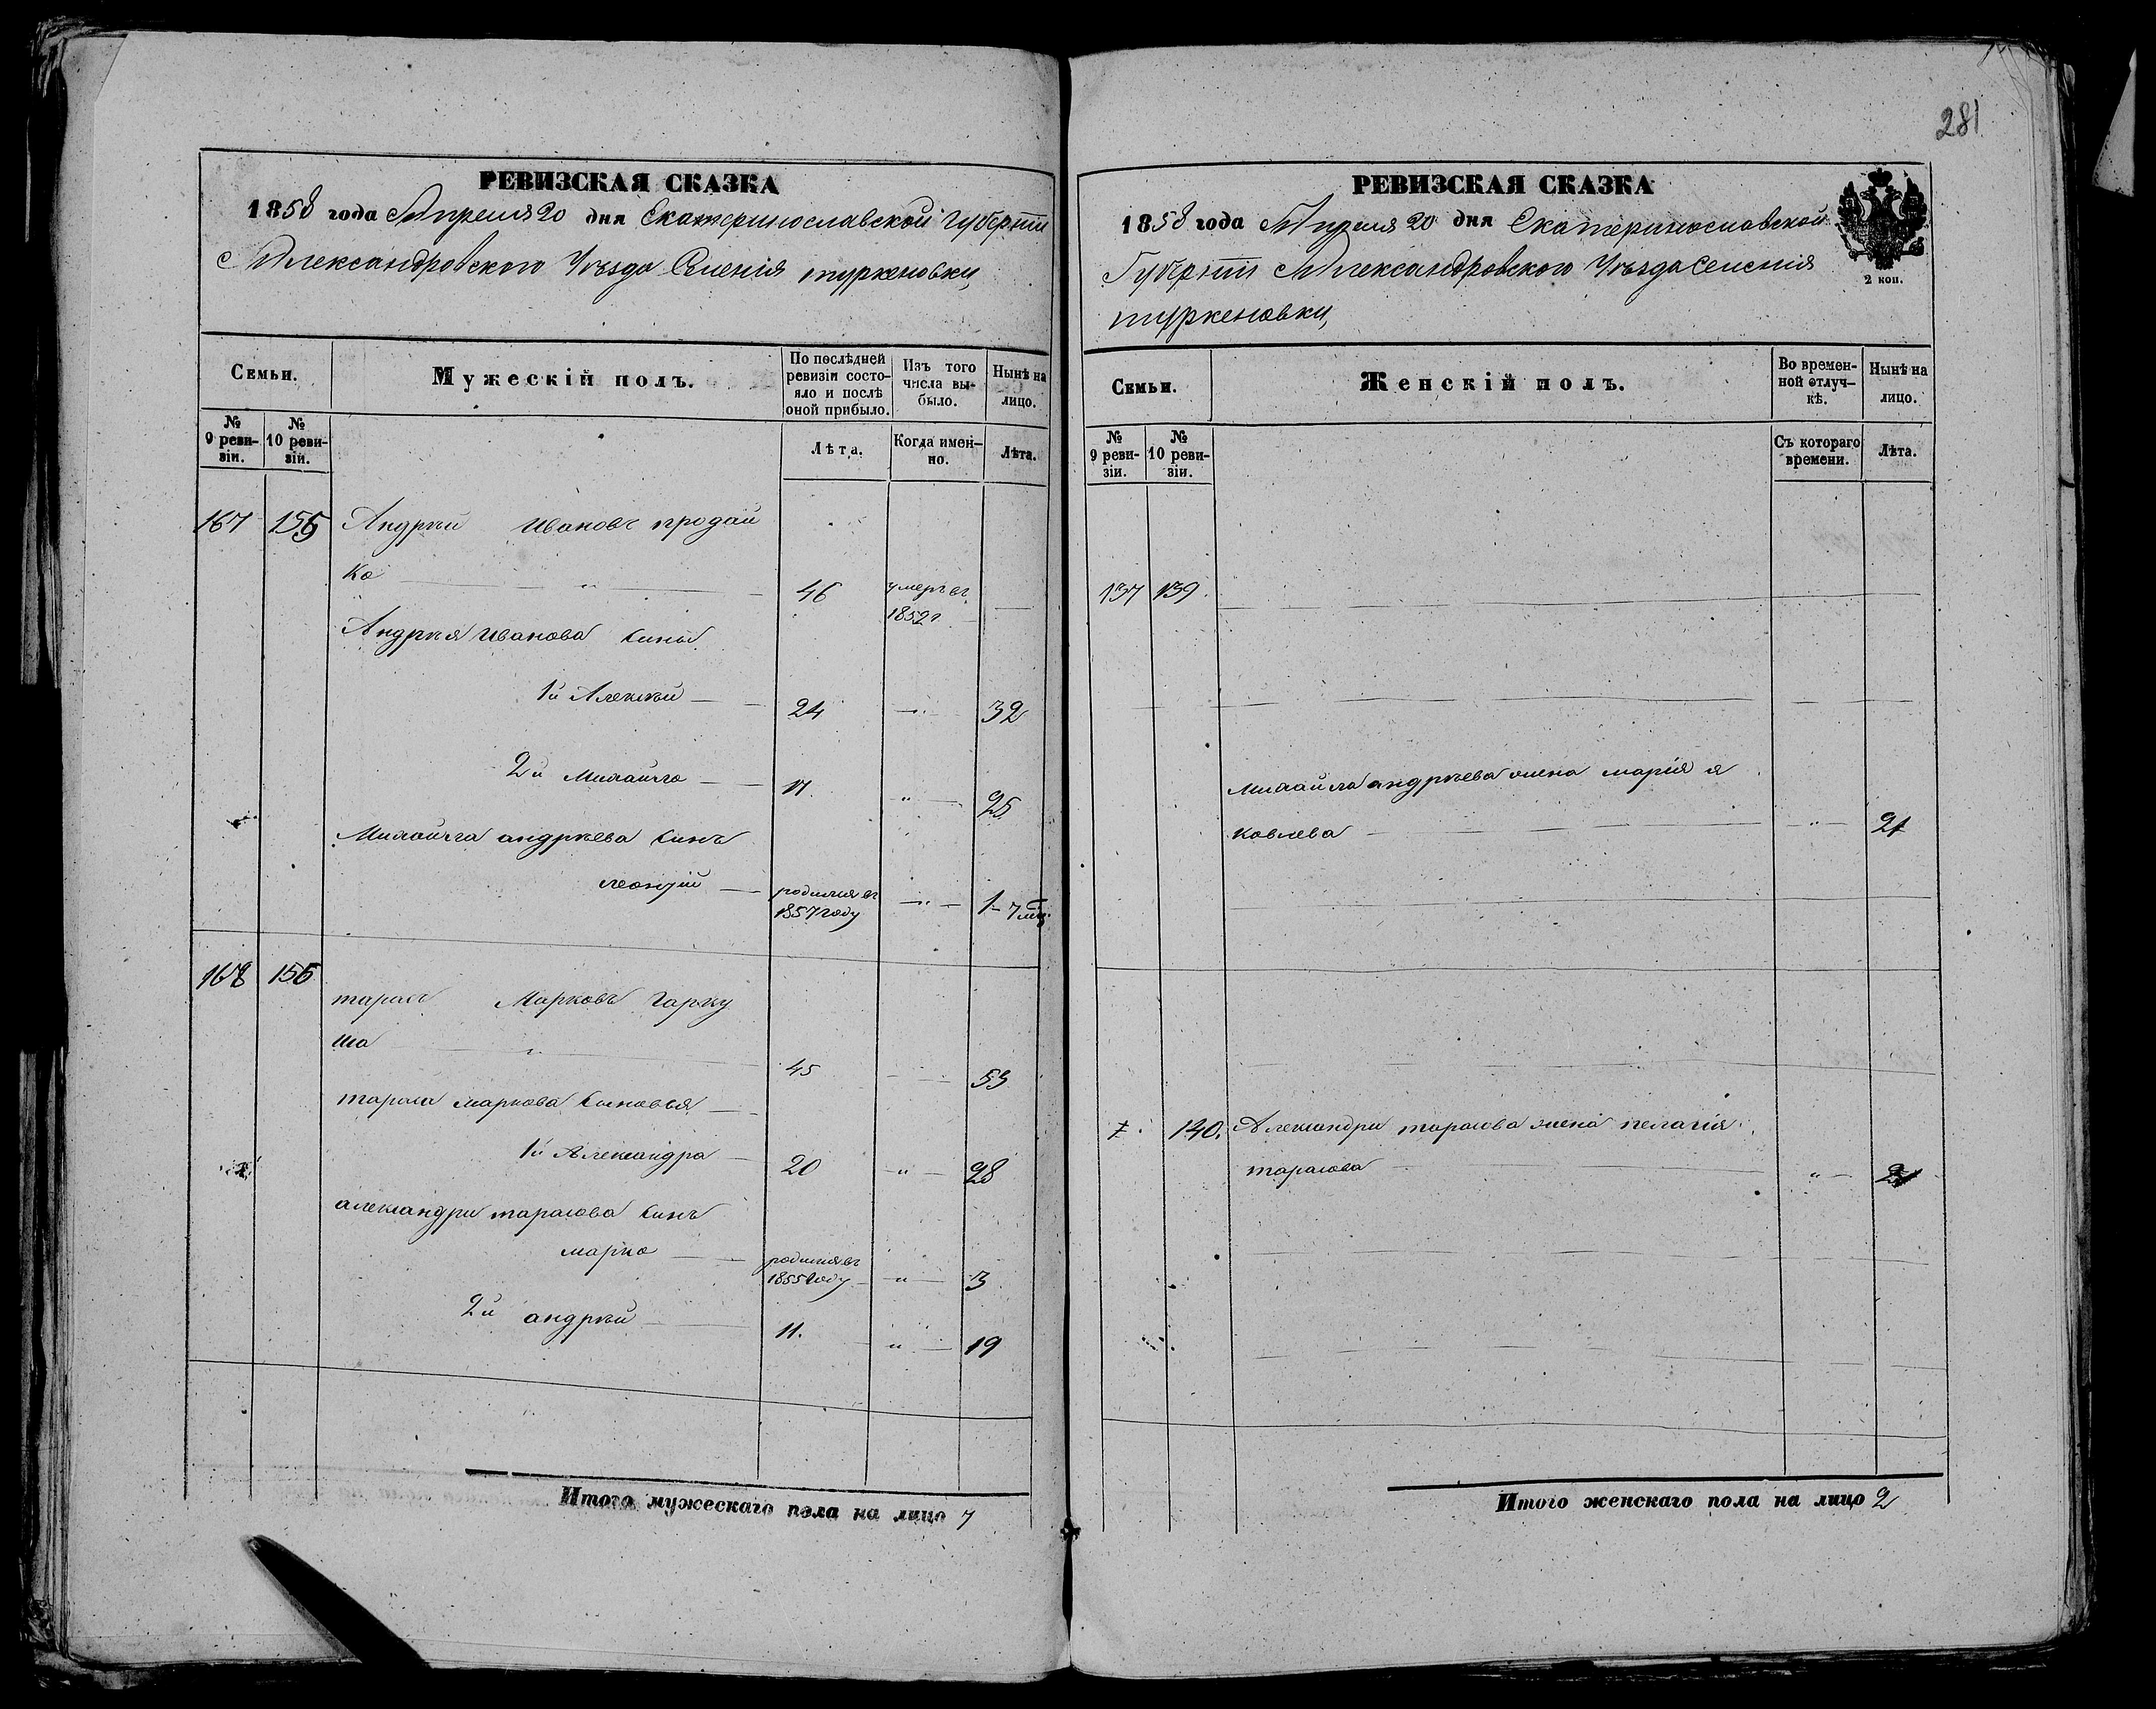 281
РЕВИЗСКАЯ СКАЗКА
1858 года Апреля 20 дня Екатеринославской Губерніи
Александровского Уѣзда Селенія туркеновки,
Семьи.
Мужескій полъ.
По послѣдней ревизіи состояло и послѣ оной прибыло.
Изъ того числа выбыло.
Нынѣ на лицо.
№ 9 ревизіи.
№ 10 ревизіи.
Лѣта.
Когда именно.
Лѣта.
167 155 Андрѣй Ивановъ продай
ко 46 умеръ въ
1852г
Андрѣя Иванова сины
1й Алексѣй 24 " 32
2й Михайло 17 " 25
Михайла андрѣева синъ
леонтій родился въ 1857 году " 1 - 7 мѣц
168 156
тарасъ Марковъ Гарку
ша " 45 53
тараса маркова синовья
1й Александра 20 " 28
александри тарасова синъ
марко родился въ 1855 году " 3
2й андрѣй 11. " 19
Итого мужескаго пола на лицо 7
РЕВИЗСКАЯ СКАЗКА
1858 года Апреля 20 дня Екатеринославской
Губерніи Александровского Уѣзда Селенія
туркеновки,
2 коп.
Семьи.
Женскій полъ.
Во временной отлучкѣ.
Нынѣ на лицо.
№ 9 ревизіи.
№ 10 ревизіи.
Съ котораго времени.
Лѣта.
137 139.
Михайла андрѣева жена марія я
ковлева " 21
140. Александри тарасова жена пелагія
тарасова "
Итого женскаго пола на лицо 2